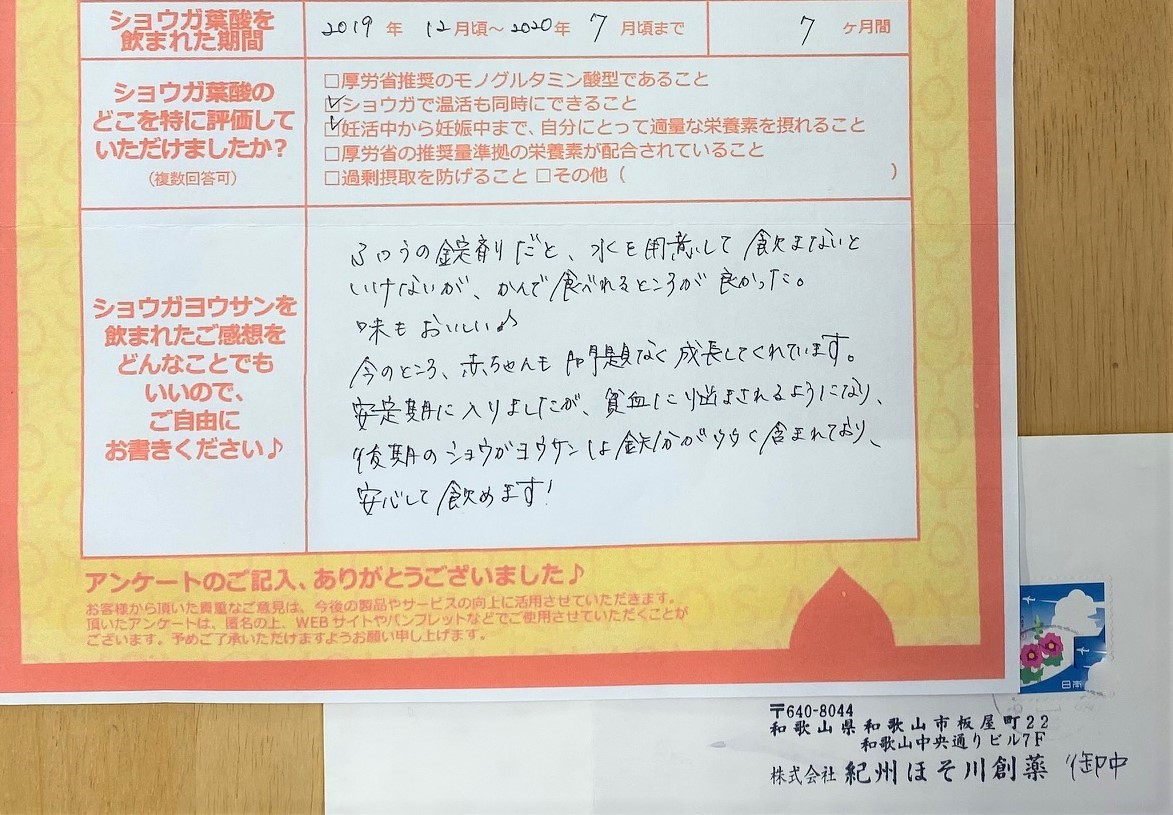 ショウガ葉酸を
飲まれた期間
2019 年 12 月頃～ 2020 年 7 月頃まで
7 ヶ月間
ショウガ葉酸の
どこを特に評価して
いただけましたか？
(複数回答可)
□厚労省推奨のモノグルタミン酸型であること
☑ショウガで温活も同時にできること
☑妊活中から妊娠中まで、自分にとって適量な栄養素を摂れること
□厚労省の推奨量準拠の栄養素が配合されていること
□過剰摂取を防げること □その他（　　　）
ショウガヨウサンを
飲まれたご感想を
どんなことでも
いいので、
ご自由に
お書きください♪
ふつうの錠剤だと、水を用意して飲まないと
いけないが、かんで食べれるところが良かった。
味もおいしい♪
今のところ、赤ちゃんも問題なく成長してくれています。
安定期に入りましたが、貧血に悩まされるようになり、
後期のショウガヨウサンは鉄分が多く含まれており、
安心して飲めます!
アンケートのご記入、ありがとうございました♪
お客様から頂いた貴重なご意見は、今後の製品やサービスの向上に活用させていただきます。
頂いたアンケートは、匿名の上、WEBサイトやパンフレットなどでご使用させていただくことが
ございます。予めご了承いただけますようお願い申し上げます。
〒640-8044
和歌山県和歌山市板屋町22
和歌山中央通りビル7F
株式会社 紀州ほそ川創薬 御中